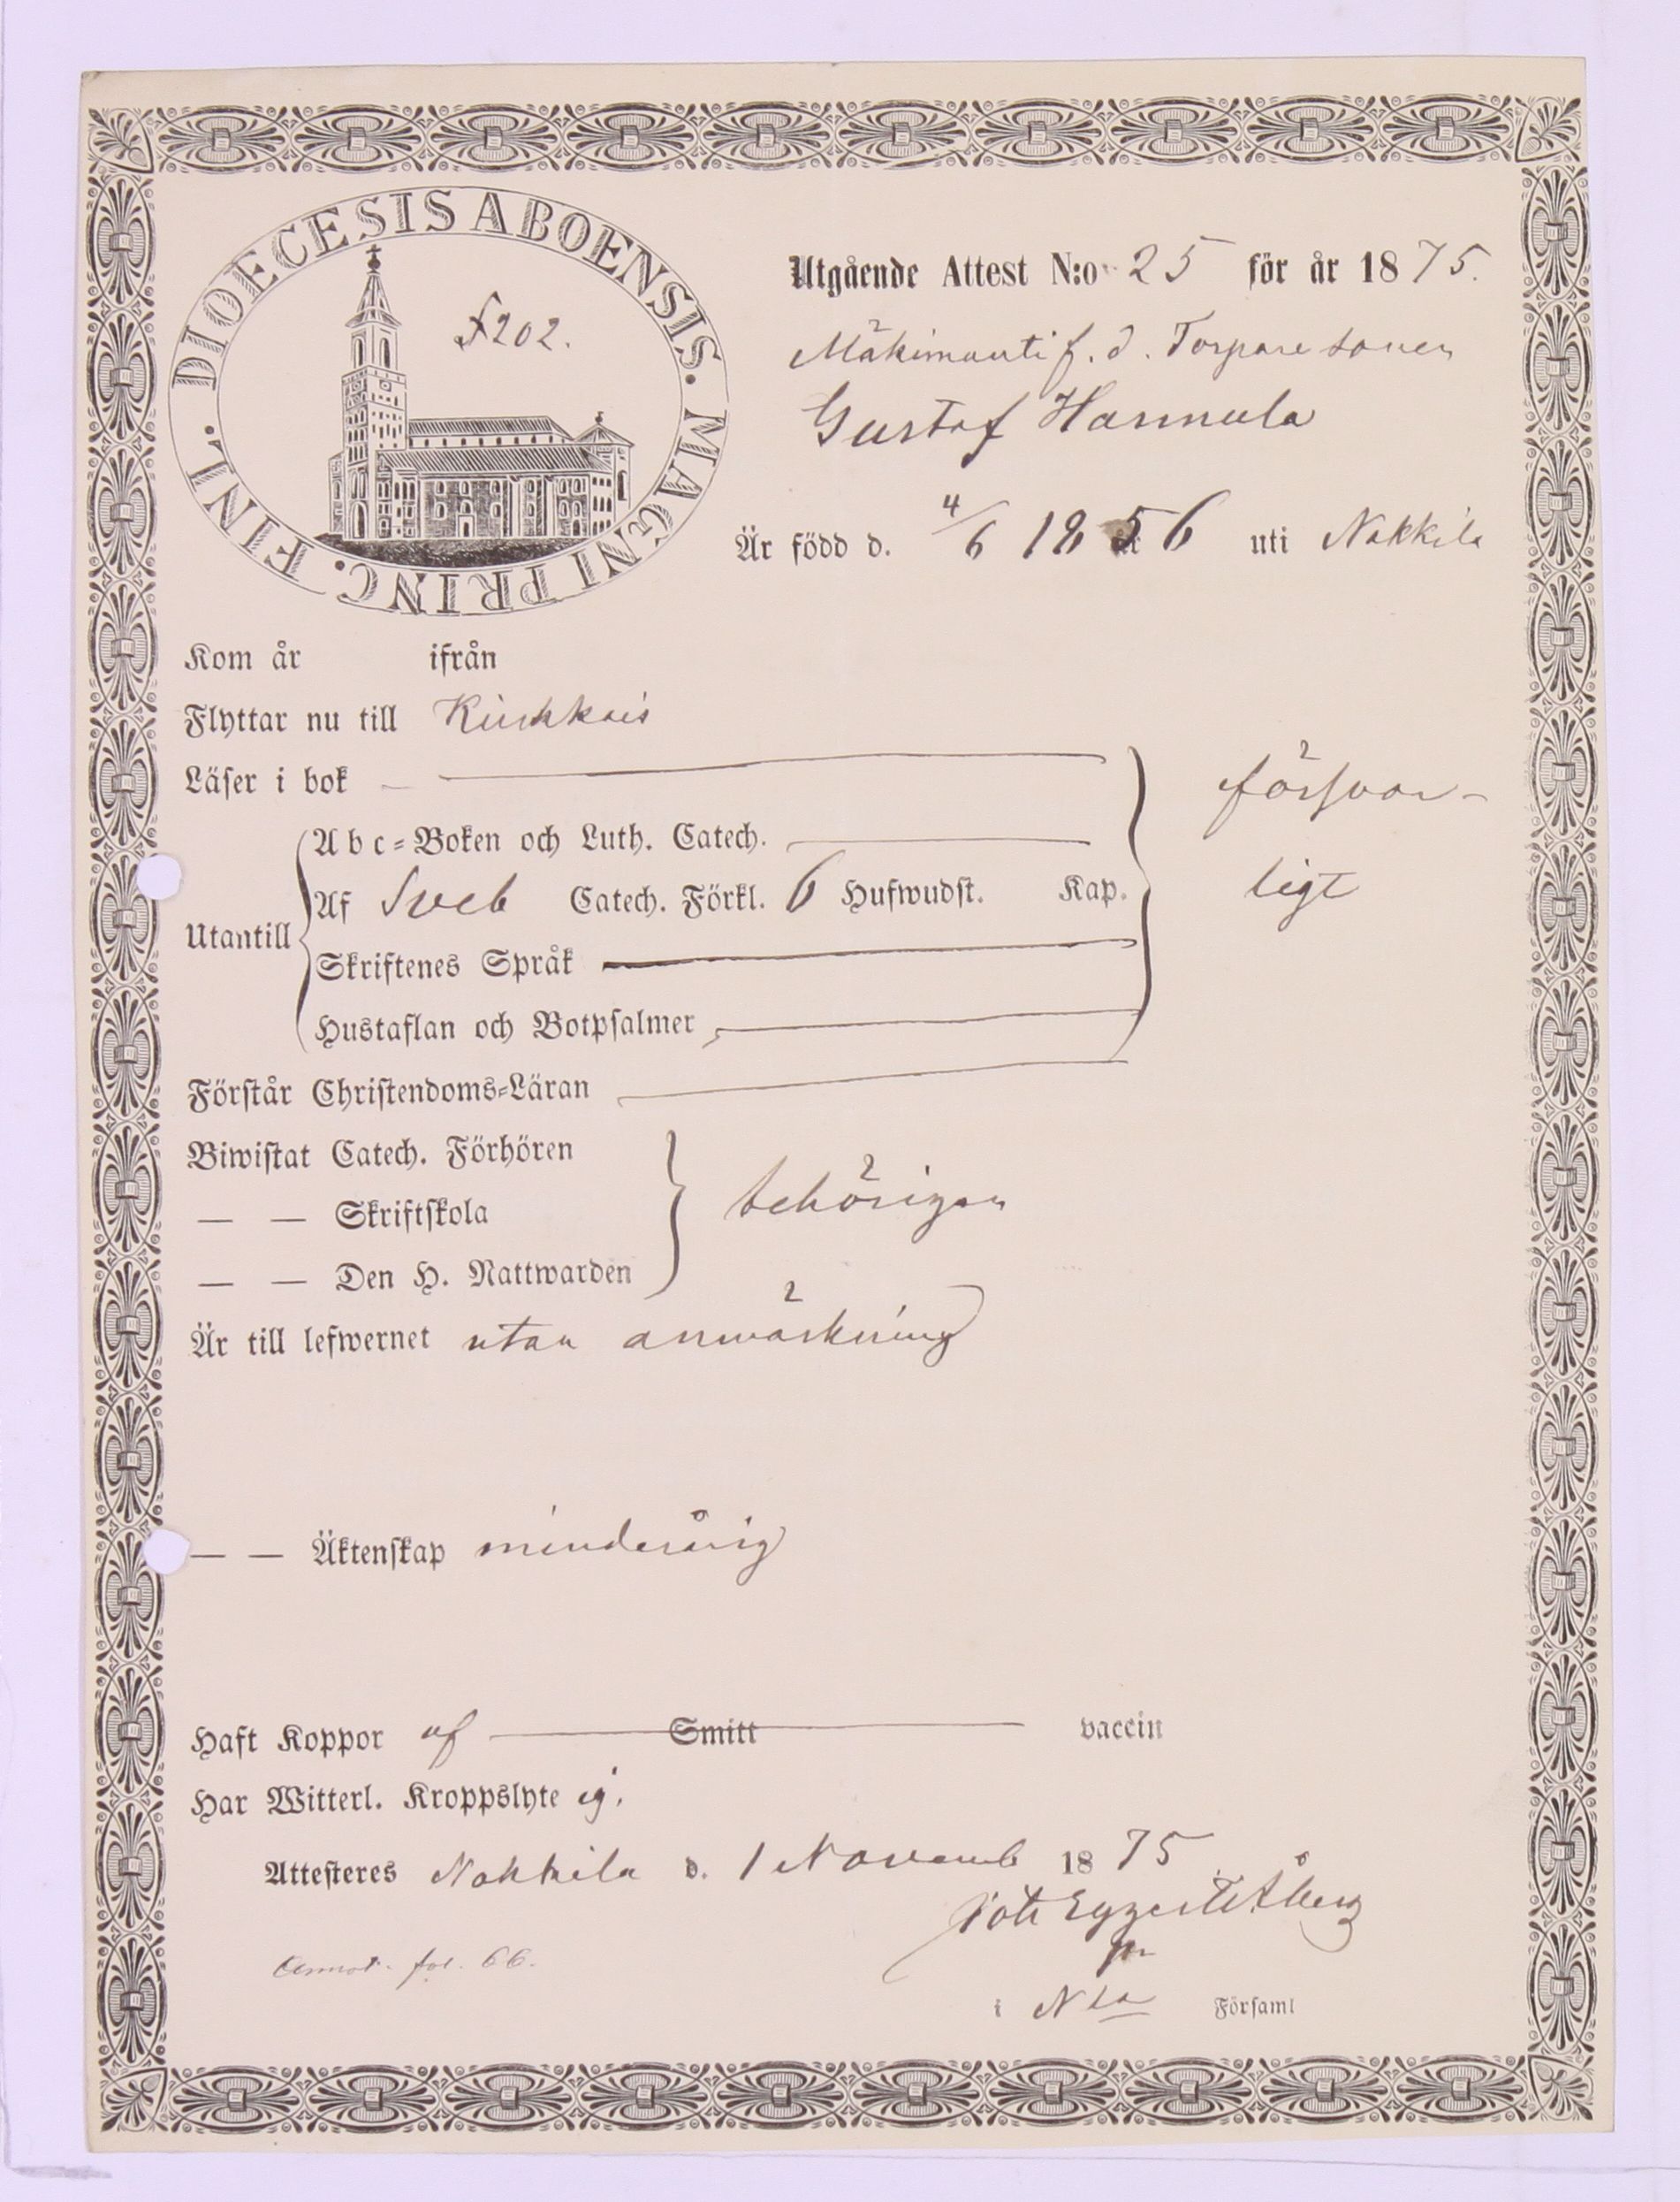 DIOECESIS ABOENSIS. MAGNI PRINC. FINL.
202.
Utgående Attest N:o 25 för år 1875.
f. d. Torparesonen
Gustaf Hannula
Är född d. 4/6 1856 uti Nakkila
Kom år ifrån
Flyttar nu till
Läser i bok
försvar-
Abc-Boken och Luth. Catech.
Utantill
Af Sveb Catech. Förkl. 6 Hufwudst. Kap.
ligt
Skriftenes Språk
Hustaflan och Botpsalmer
Förstår Christendoms-Läran
Biwistat Catech. Förhören
— — Skriftskola
behörigen
— — Den H. Nattwarden
Är till lefwernet utan anmärkning
— — Äktenskap minderårig
Haft Koppor af Smitt vaccin
Har Witterl. Kroppslyte ej.
Attesteres Nakkila d. 1 Novemb 1875
Åberg
Annot. fol. 66.
i Nla Församl